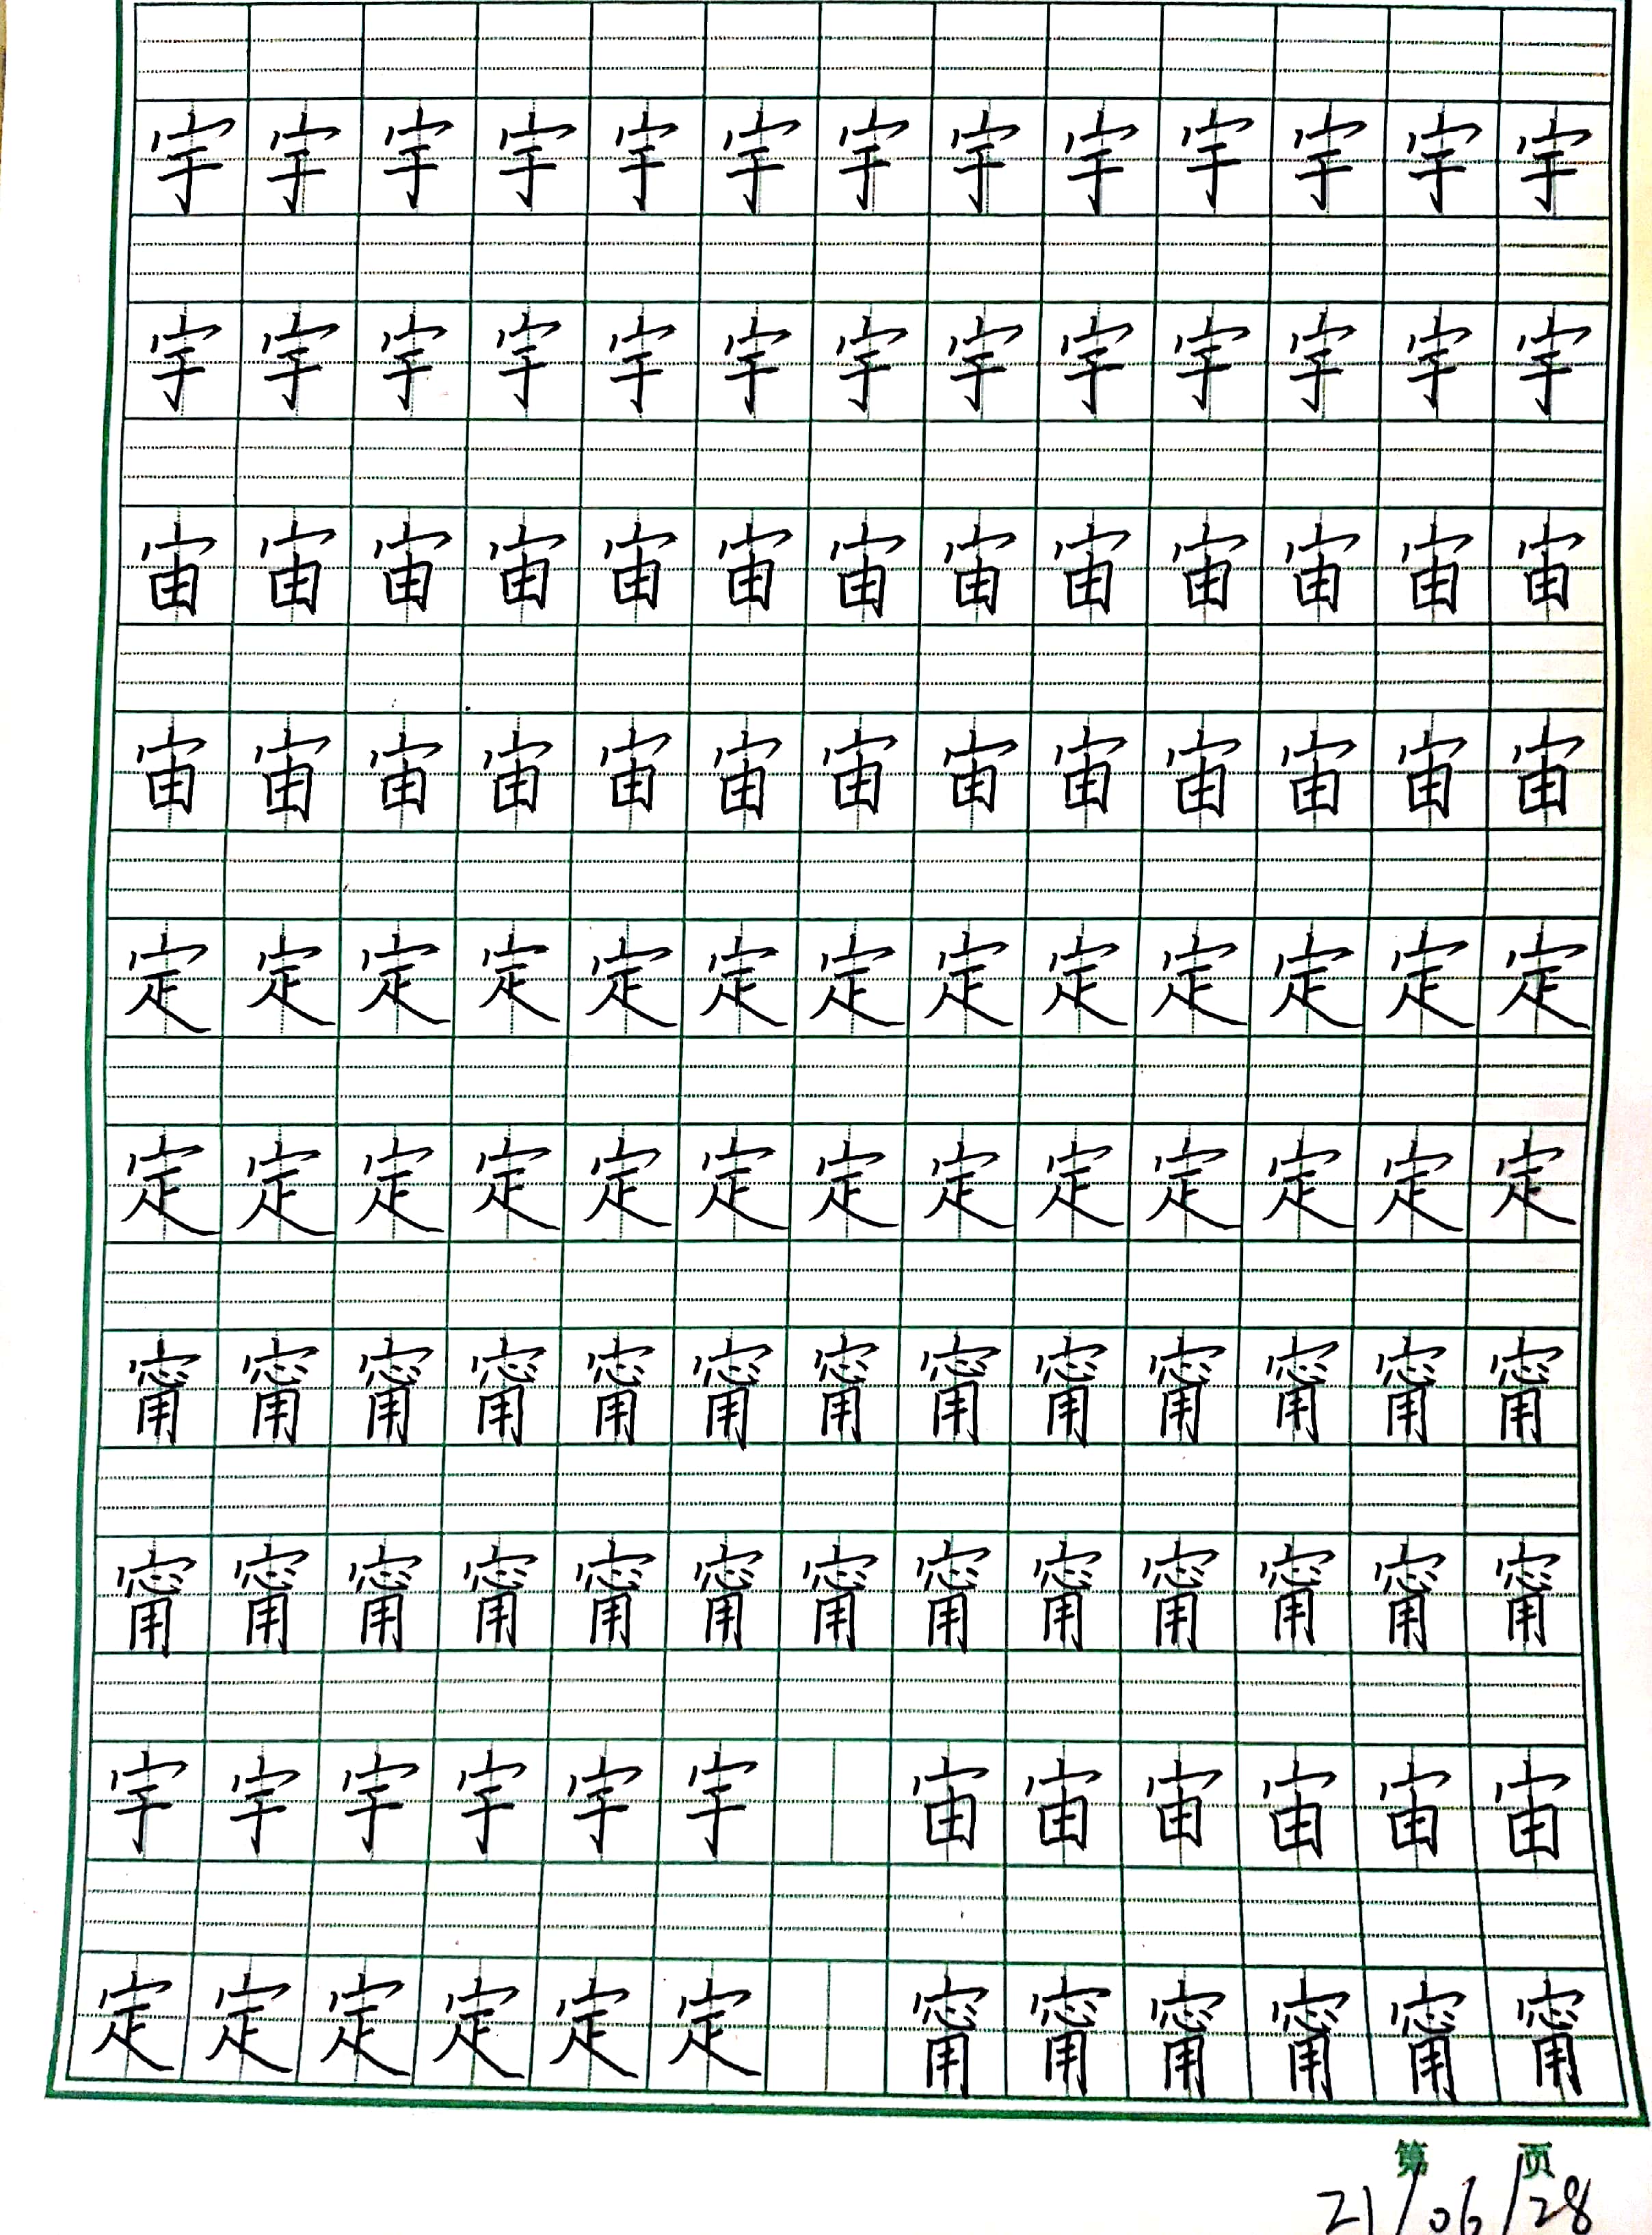 宇宇宇宇宇宇宇宇宇宇宇宇宇
宇宇宇宇宇宇宇宇宇宇宇宇宇
宙宙宙宙宙宙宙宙宙宙宙宙宙
宙宙宙宙宙宙宙宙宙宙宙宙宙
定定定定定定定定定定定定定
定定定定定定定定定定定定定
甯甯甯甯甯甯甯甯甯甯甯甯甯
甯甯甯甯甯甯甯甯甯甯甯甯甯
宇宇宇宇宇宇 宙宙宙宙宙宙
定定定定定定 甯甯甯甯甯甯
第 页
21/06/28